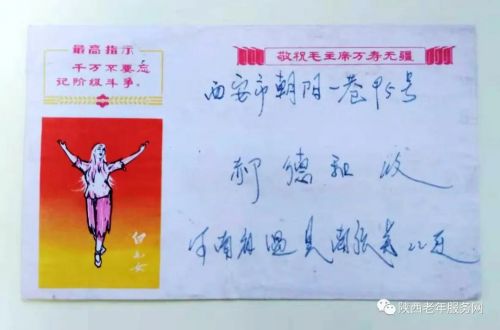 最高指示
千万不要忘
记阶级斗争。
敬祝毛主席万寿无疆
西安市朝阳一巷甲5号
郝德 收
河南省温县南张羌
白毛女
陕西老年服务网